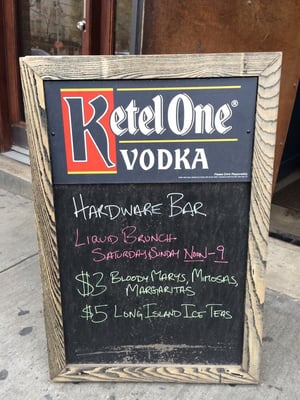 Ketel One®
VODKA
Please Drink Responsibly.
HARDWARE BAR
LIQUID BRUNCH
SATURDAY/SUNDAY NOON-9
$3 BLOODY MARYS, MIMOSAS,
MARGARITAS
$5 LONG ISLAND ICE TEAS